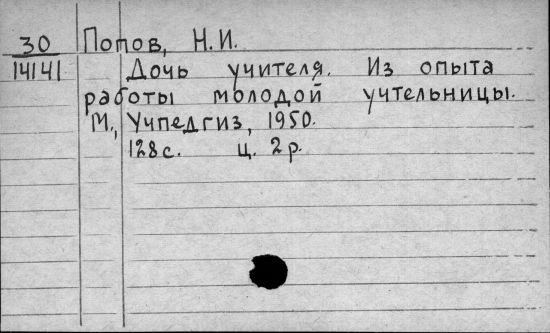 30 Попов, Н.И.
14141 Дочь учителя. Из опыта
работы молодой учтельницы.
М., Учпедгиз, 1950.
128 с. ц. 2 р.